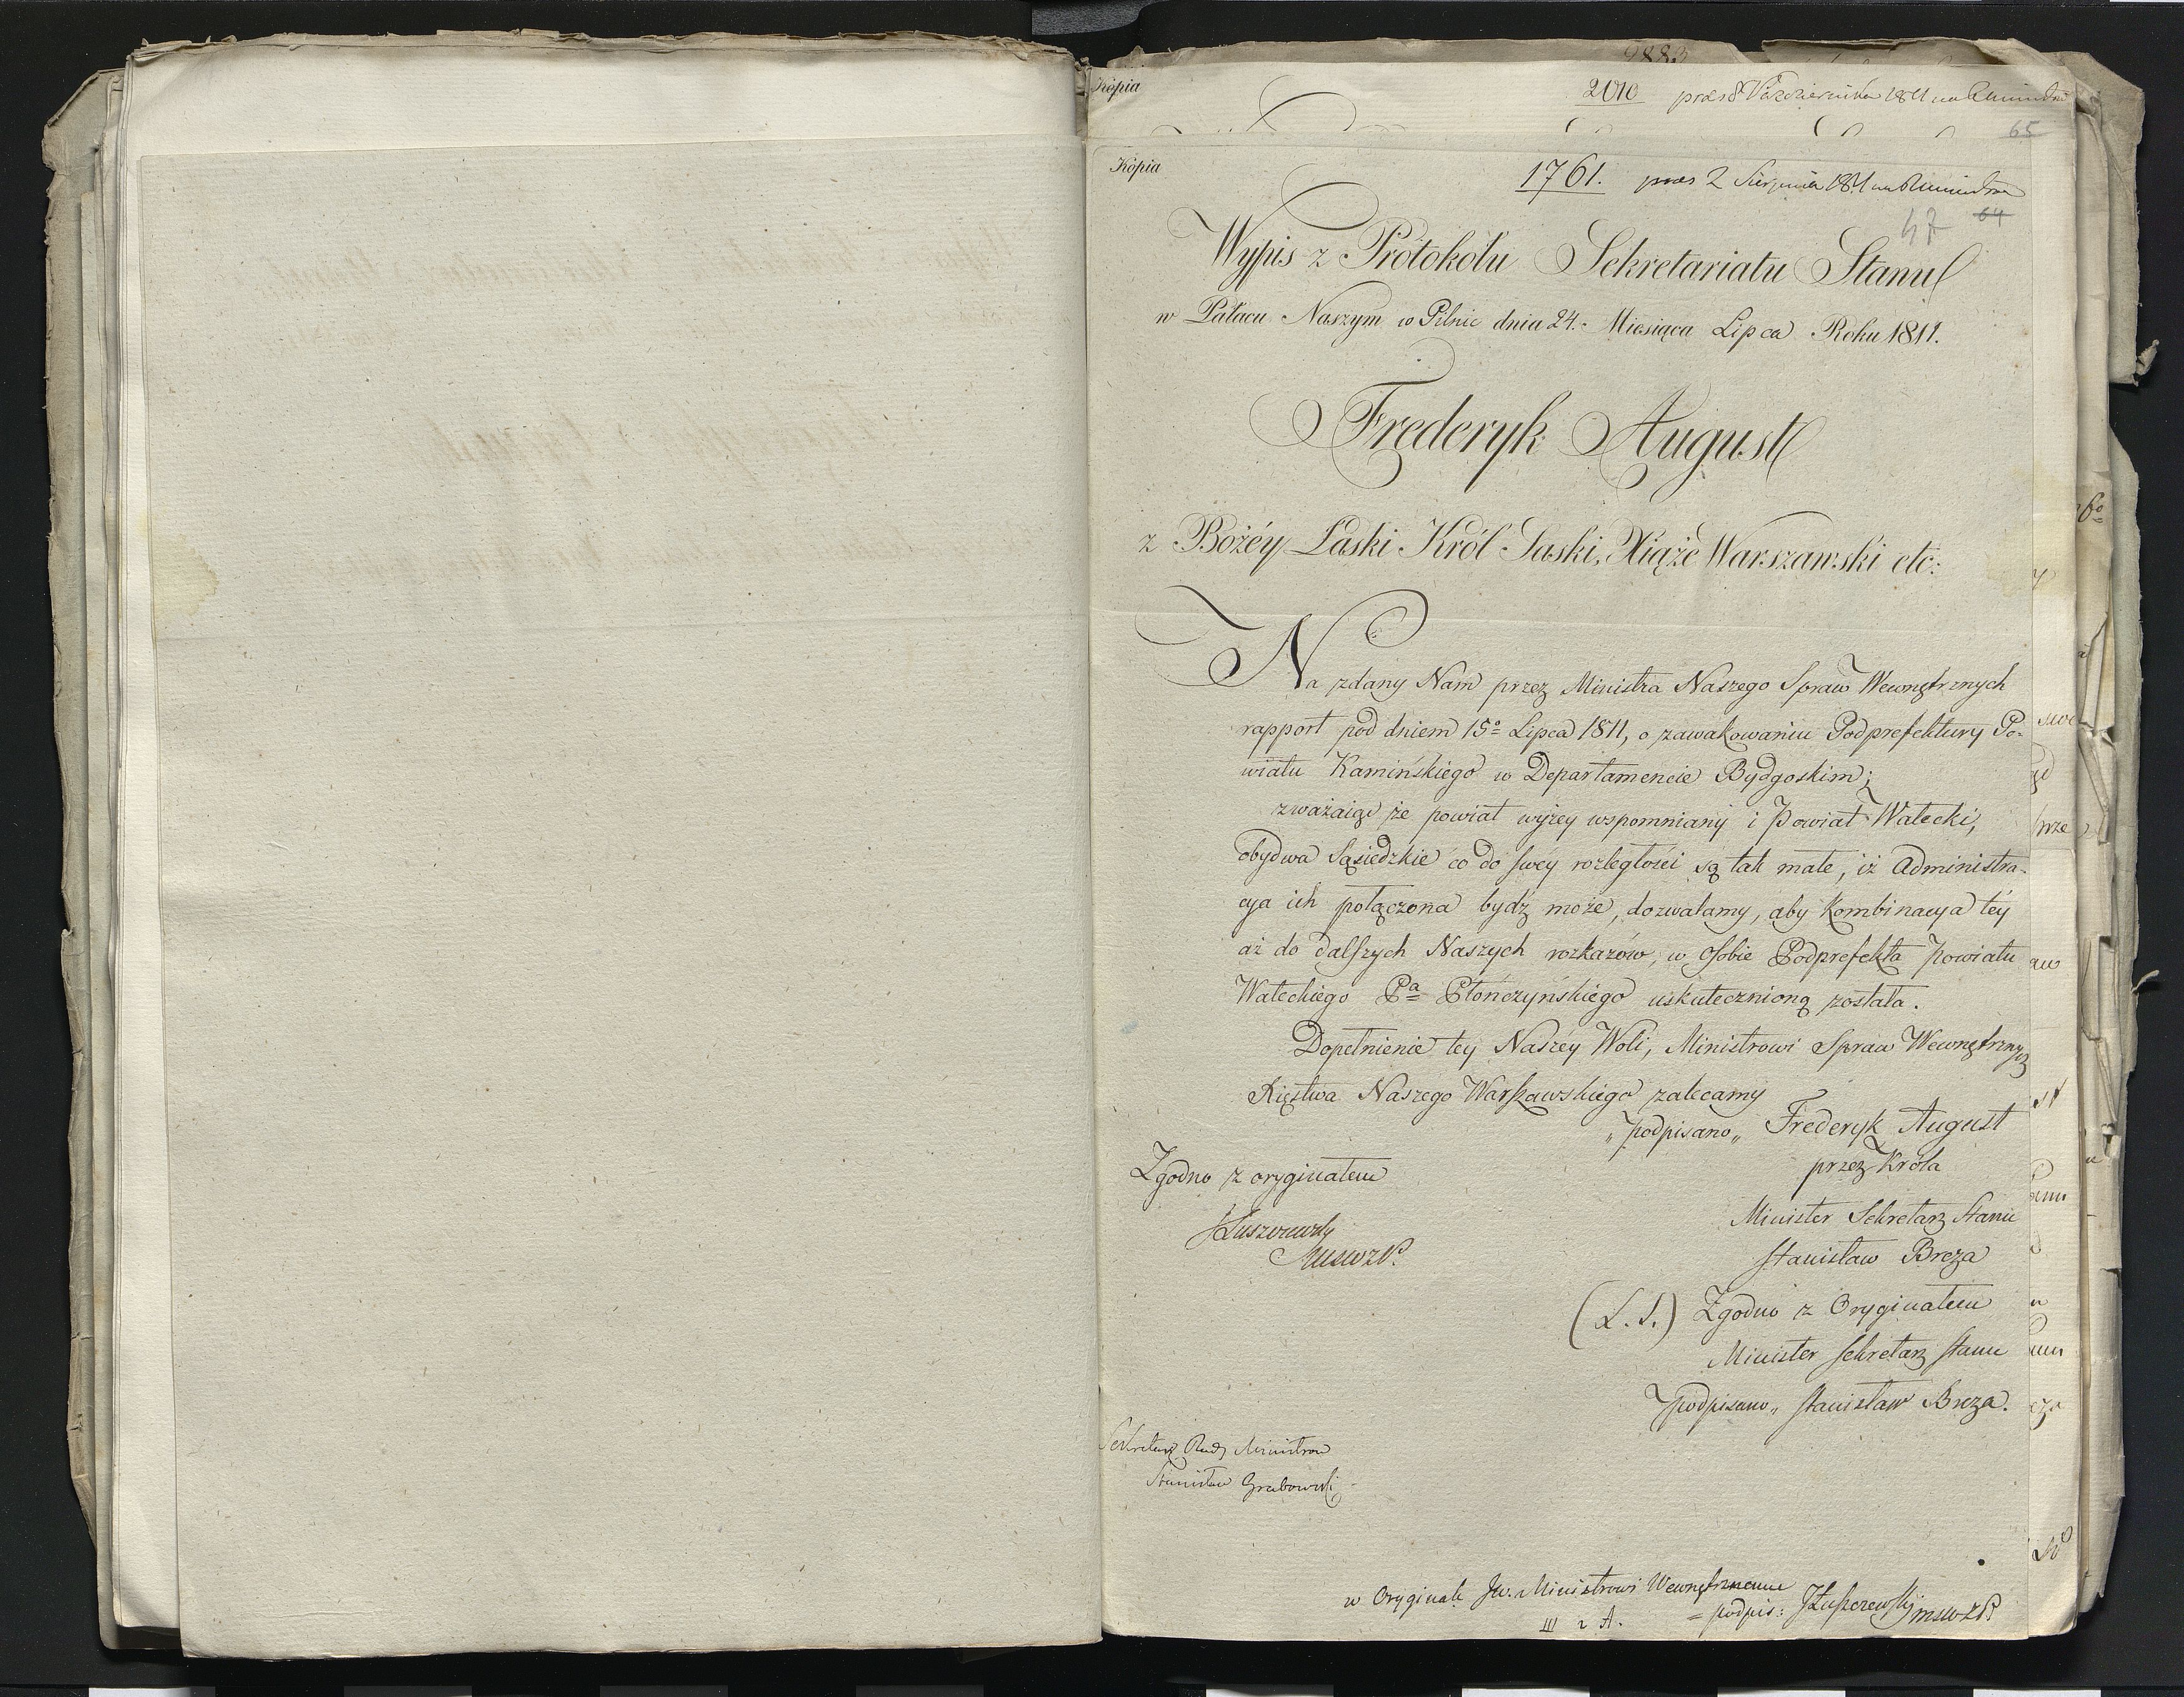 9883
Kópia
2010 praes 8 Października 1811
65
Kópia
1761. praes 2 Sierpnia 1811
47 64
Wypis z Protokółu Sekretariatu Stanu
w Pałacu Naszym w Pilnic dnia 24. Miesiąca Lipca Roku 1811.
Frederyk August
z Bożéy Łaski Król Saski, Xiąże Warszawski etc:
Na zdany Nam przez Ministra Naszego Spraw Wewnętrznych
rapport pod dniem 15º Lipca 1811, o zawakowaniu Podprefektury Po-
wiatu Kamińskiego w Departamencie Bydgoskim;
zważaiąc że powiat wyżey wspomniany i Powiat Wałecki,
obydwa Sąsiedzkie co do swey rozległości są tak małe, iż Administra-
cya ich połączona bydź może, dozwalamy, aby Kombinacya tey
aż do dalszych Naszych rozkazów, w Osobie Podprefekta Powiatu
Wałeckiego Pa Płończyńskiego uskutecznioną została.
Dopełnienie tey Naszey Woli, Ministrowi Spraw Wewnętrznych
Xięstwa Naszego Warszawskiego zalecamy
„podpisano„ Frederyk August
przez Króla
Minister Sekretarz Stanu
Stanisław Breza
(L. S.) Zgodno z Oryginałem
Minister Sekretarz Stanu
podpisano„ Stanisław Breza.
Zgodno z oryginałem
JŁuszczewski
Sekretarz Rady Ministrow
Stanisław Grabowski
w Oryginale Jw. Ministrowi Wewnętrznemu
= podpis: JŁuszczewski mswzP
III 2 A.